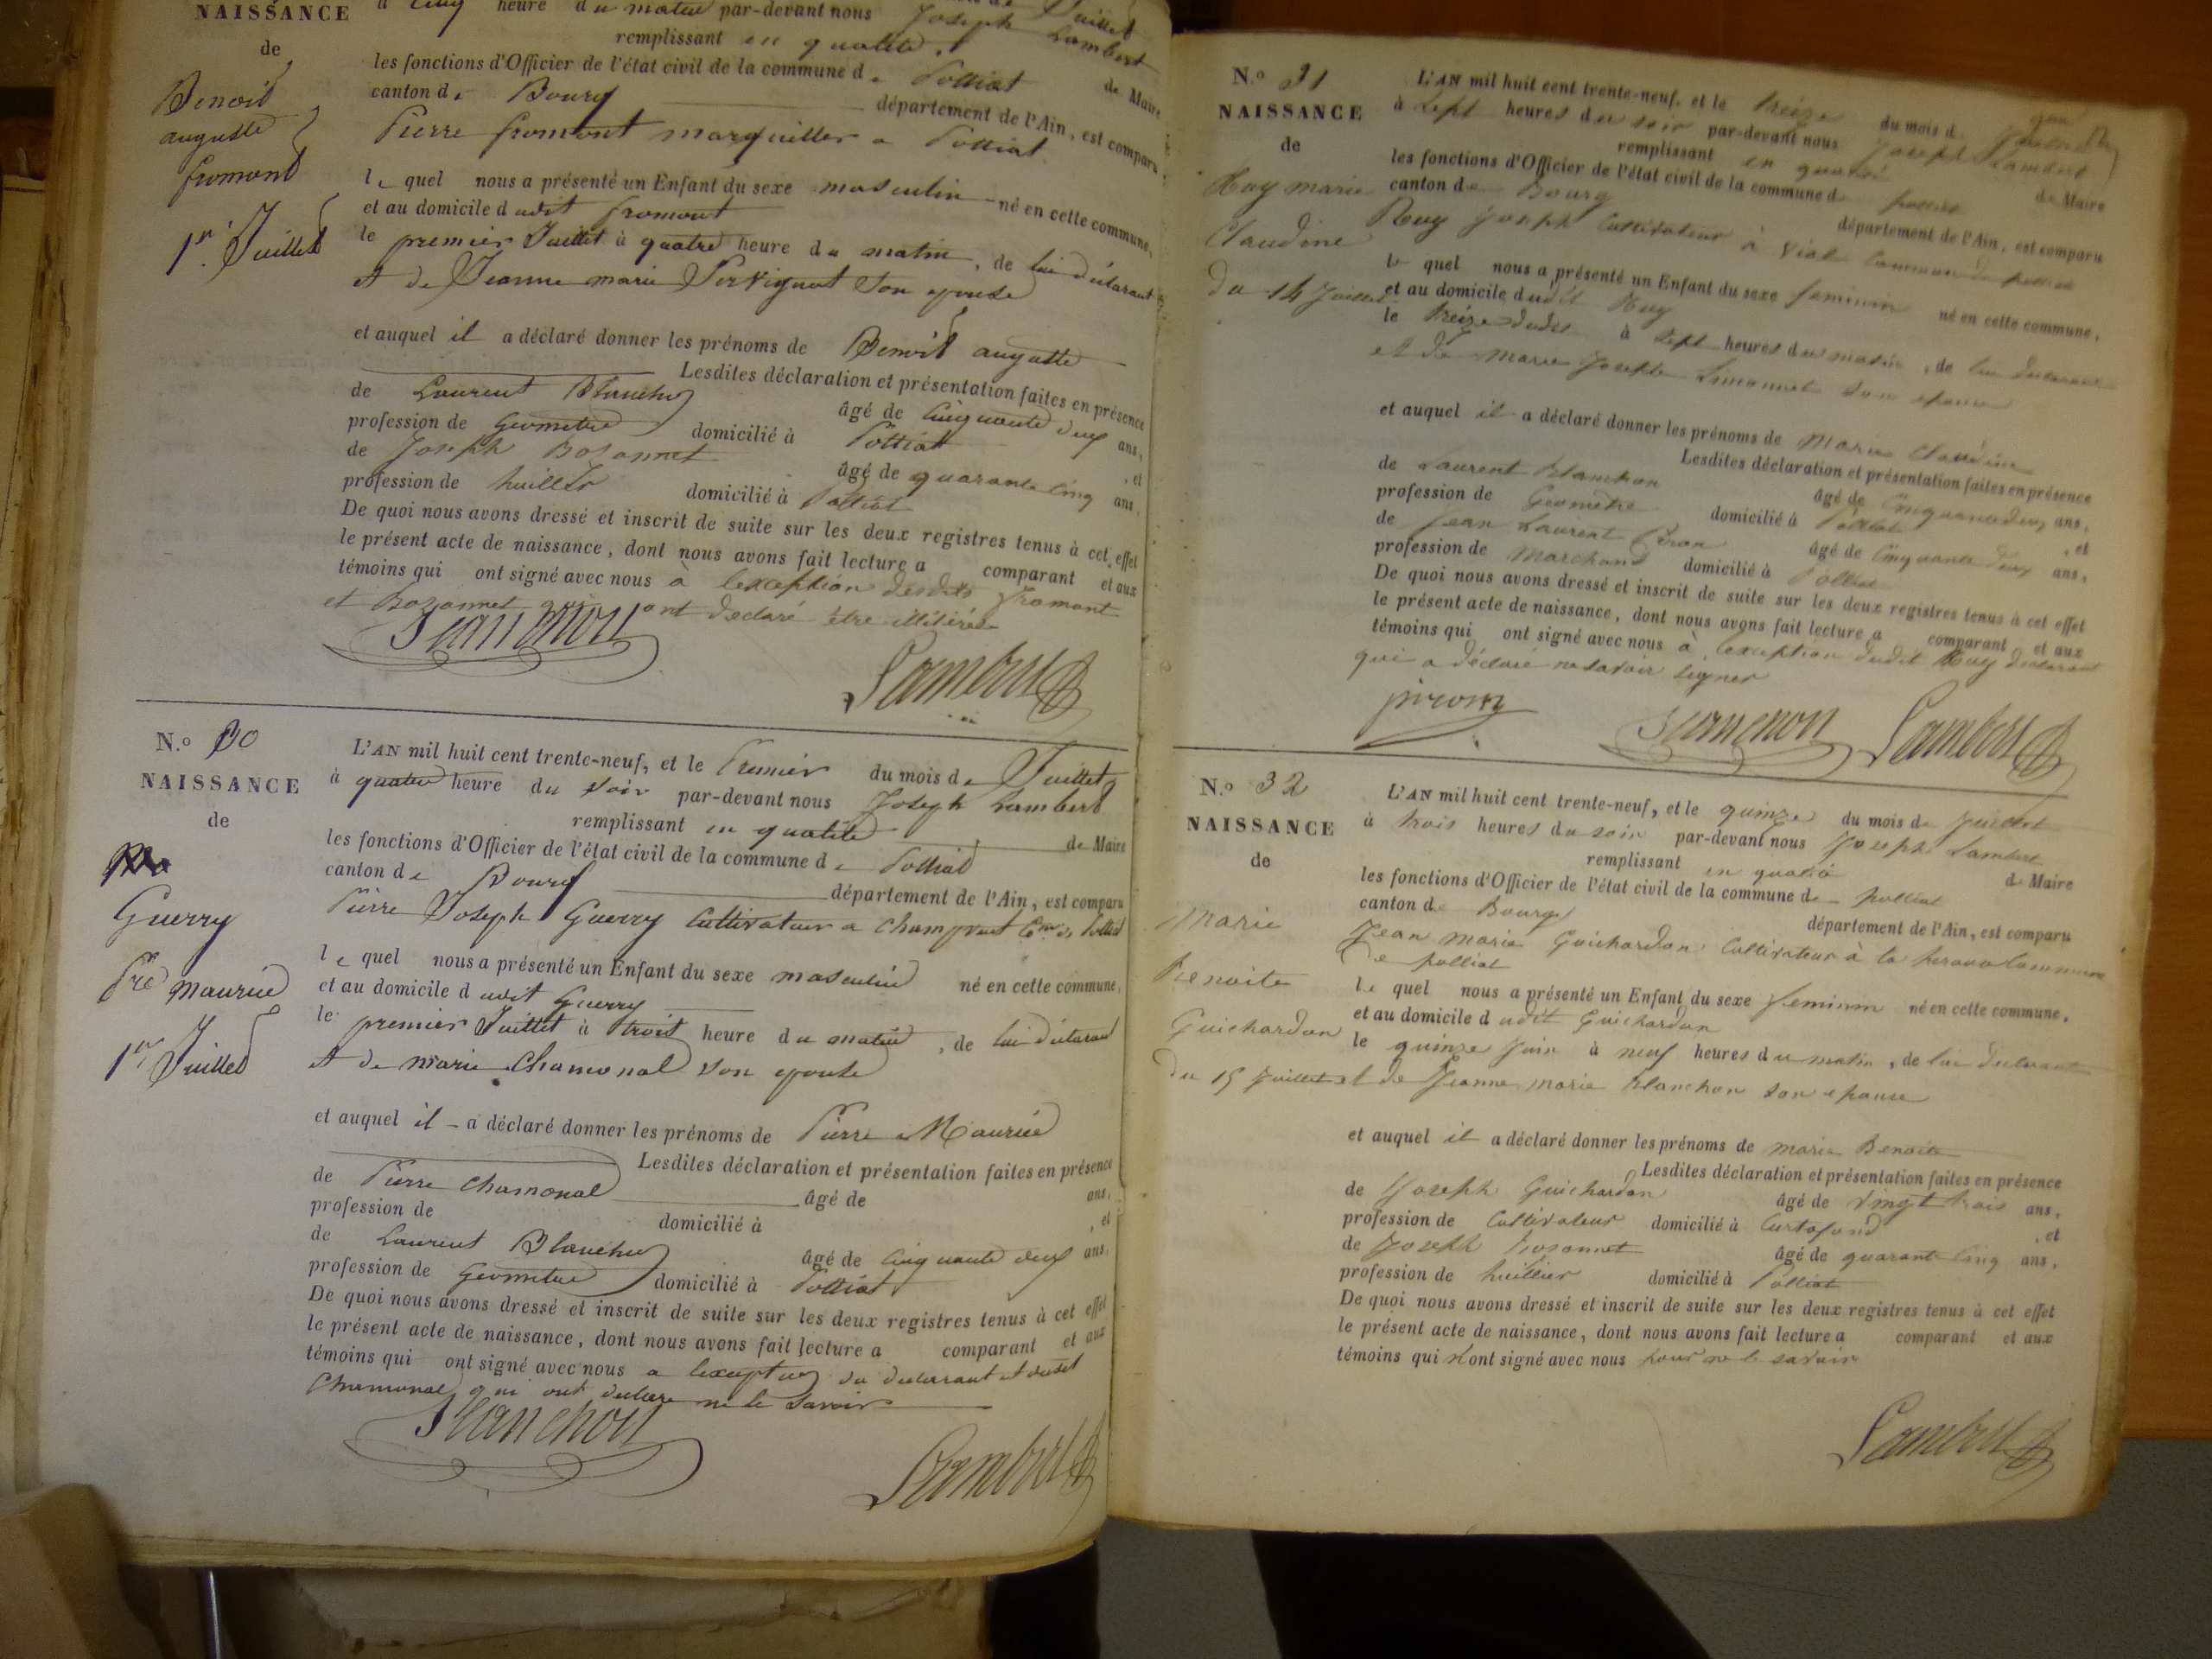 NAISSANCE
de
Benoit
auguste
fromont
1er Juillet
à Cinq heure du matin par-devant nous Joseph Lambert
remplissant en qualité de Maire
les fonctions d'Officier de l'état civil de la commune de Polliat
canton de Bourg département de l'Ain, est comparu
Pierre fromont marguiller a Polliat
le quel nous a présenté un Enfant du sexe masculin né en cette commune,
et au domicile dudit fromont
le premier Juillet à quatre heure du matin, de lui déclarant
et de Jeanne marie son epouse
et auquel il a déclaré donner les prénoms de Benoit auguste
Lesdites déclaration et présentation faites en présence
de Laurent Blanchon âgé de Cinquante deux ans,
profession de Geometre domicilié à Polliat , et
de Joseph Bozonnet âgé de quarante Cinq ans,
profession de huillier domicilié à Polliat
De quoi nous avons dressé et inscrit de suite sur les deux registres tenus à cet effet
le présent acte de naissance, dont nous avons fait lecture a comparant et aux
témoins qui ont signé avec nous à l'exception desdits fromont
et Bozonnet qui ont declaré être illitérés
Blanchon
Lambert
N.o 30
NAISSANCE
de
Guerry
Pre Maurice
1er Juillet
L'AN mil huit cent trente-neuf, et le Premier du mois de Juillet
à quatre heure du soir par-devant nous Joseph Lambert
remplissant en qualité de Maire
les fonctions d'Officier de l'état civil de la commune de Polliat
canton de Bourg département de l'Ain, est comparu
Pierre Joseph Guerry Cultivateur a Champvent Cne de Polliat
le quel nous a présenté un Enfant du sexe masculin né en cette commune,
et au domicile dudit Guerry
le premier Juillet à trois heure du matin, de lui déclarant
et de marie Chamonal son epouse
et auquel il a déclaré donner les prénoms de Pierre Maurice
Lesdites déclaration et présentation faites en présence
de Pierre Chamonal âgé de ans,
profession de domicilié à , et
de Laurent Blanchon âgé de Cinquante deux ans,
profession de Geometre domicilié à Polliat
De quoi nous avons dressé et inscrit de suite sur les deux registres tenus à cet effet
le présent acte de naissance, dont nous avons fait lecture a comparant et aux
témoins qui ont signé avec nous a lexception du declarant et dudit
Chamonal qui ont declare ne le savoir
Blanchon
Lambert
N.o 31
NAISSANCE
de
Ruy marie
Claudine
du 14 Juillet
L'AN mil huit cent trente-neuf, et le treize du mois de
à sept heures du soir par-devant nous Joseph Lambert
remplissant en qualité de Maire
les fonctions d'Officier de l'état civil de la commune de polliat
canton de Bourg département de l'Ain, est comparu
Ruy Joseph Cultivateur à Vial Commune de polliat
le quel nous a présenté un Enfant du sexe feminin né en cette commune,
et au domicile dudit Ruy
le treize dudit à sept heures du matin, de lui declarant
et de marie Josephte Limonnet son epouse
et auquel il a déclaré donner les prénoms de Marie Claudine
Lesdites déclaration et présentation faites en présence
de Laurent Blanchon âgé de Cinquante deux ans,
profession de Geometre domicilié à Polliat , et
de Jean Laurent Piron âgé de Cinquante deux ans,
profession de Marchand domicilié à Polliat
De quoi nous avons dressé et inscrit de suite sur les deux registres tenus à cet effet
le présent acte de naissance, dont nous avons fait lecture a comparant et aux
témoins qui ont signé avec nous à l'exception dudit Ruy declarant
qui a déclaré ne savoir signer
piron
Blanchon
Lambert
N.o 32
NAISSANCE
de
Marie
Benoite
Guichardon
du 15 Juillet
L'AN mil huit cent trente-neuf, et le quinze du mois de Juillet
à trois heures du soir par-devant nous Joseph Lambert
remplissant en qualité de Maire
les fonctions d'Officier de l'état civil de la commune de polliat
canton de Bourg département de l'Ain, est comparu
Jean Marie Guichardon Cultivateur à la Commune
de polliat
le quel nous a présenté un Enfant du sexe feminin né en cette commune,
et au domicile dudit Guichardon
le quinze Juin à neuf heures du matin, de lui declarant
et de Jeanne Marie Blanchon son epouse
et auquel il a déclaré donner les prénoms de Marie Benoite
Lesdites déclaration et présentation faites en présence
de Joseph Guichardon âgé de Vingt trois ans,
profession de Cultivateur domicilié à Curtafond , et
de Joseph Bozonnet âgé de quarante Cinq ans,
profession de huillier domicilié à Polliat
De quoi nous avons dressé et inscrit de suite sur les deux registres tenus à cet effet
le présent acte de naissance, dont nous avons fait lecture a comparant et aux
témoins qui nont signé avec nous pour ne le savoir
Lambert